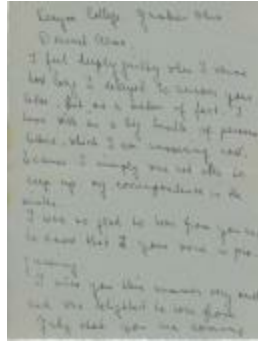 Kenyon College Gambier Ohio
Dearest Alma,
I feel deeply guilty when I think
how long I delayed to answer your
letter. But as a matter of fact, I
have with me a big bundle of personal
letters, which I am answering now,
because I simply was not able to
keep up my correspondence in the
I was so glad to hear from you and
to know that your voice is
I miss you this summer very much
and was delighted to see from
that you are coming